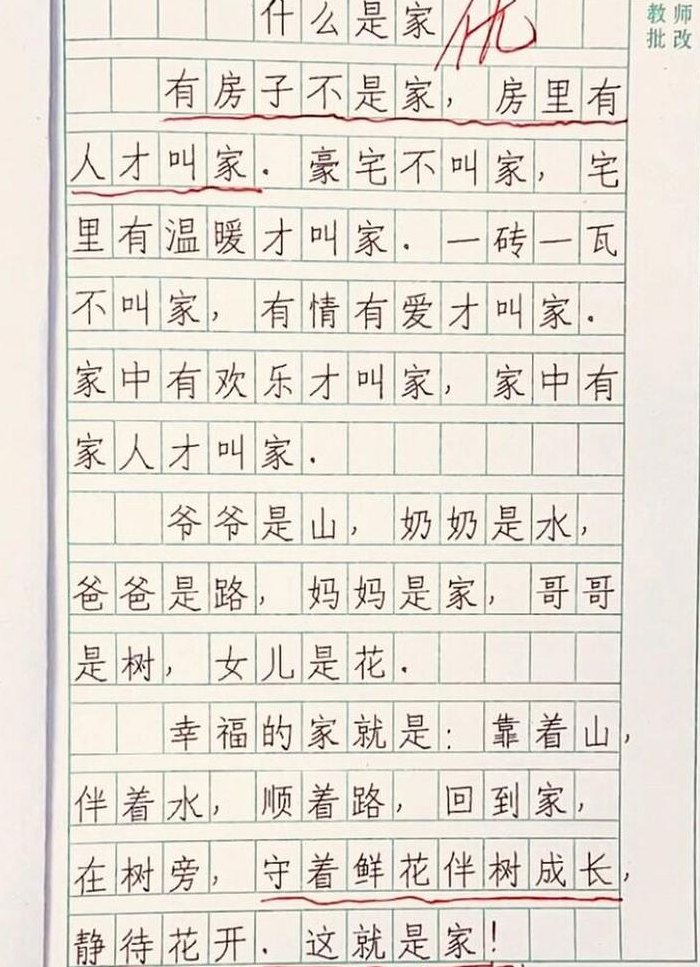 什么是家 优
教师
批改
有房子不是家，房里有
人才叫家．豪宅不叫家，宅
里有温暖才叫家．一砖一瓦
不叫家，有情有爱才叫家．
家中有欢乐才叫家，家中有
家人才叫家．
爷爷是山，奶奶是水，
爸爸是路，妈妈是家，哥哥
是树，女儿是花．
幸福的家就是：靠着山，
伴着水，顺着路，回到家，
在树旁，守着鲜花伴树成长，
静待花开．这就是家！